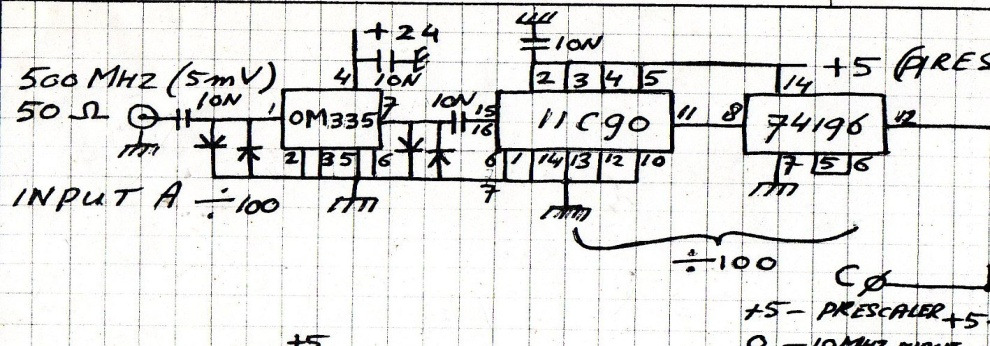 +24
10N
500 MHZ (5mV)
50 Ω
10N
4
10N
1
OM335
7
2
3
5
6
10N
15
16
2
3
4
5
11C90
11
6
1
14
13
12
10
7
14
+5
8
74196
12
7
5
6
INPUT A ÷100
÷100
CØ
+5 - PRESCALER
+5
+5